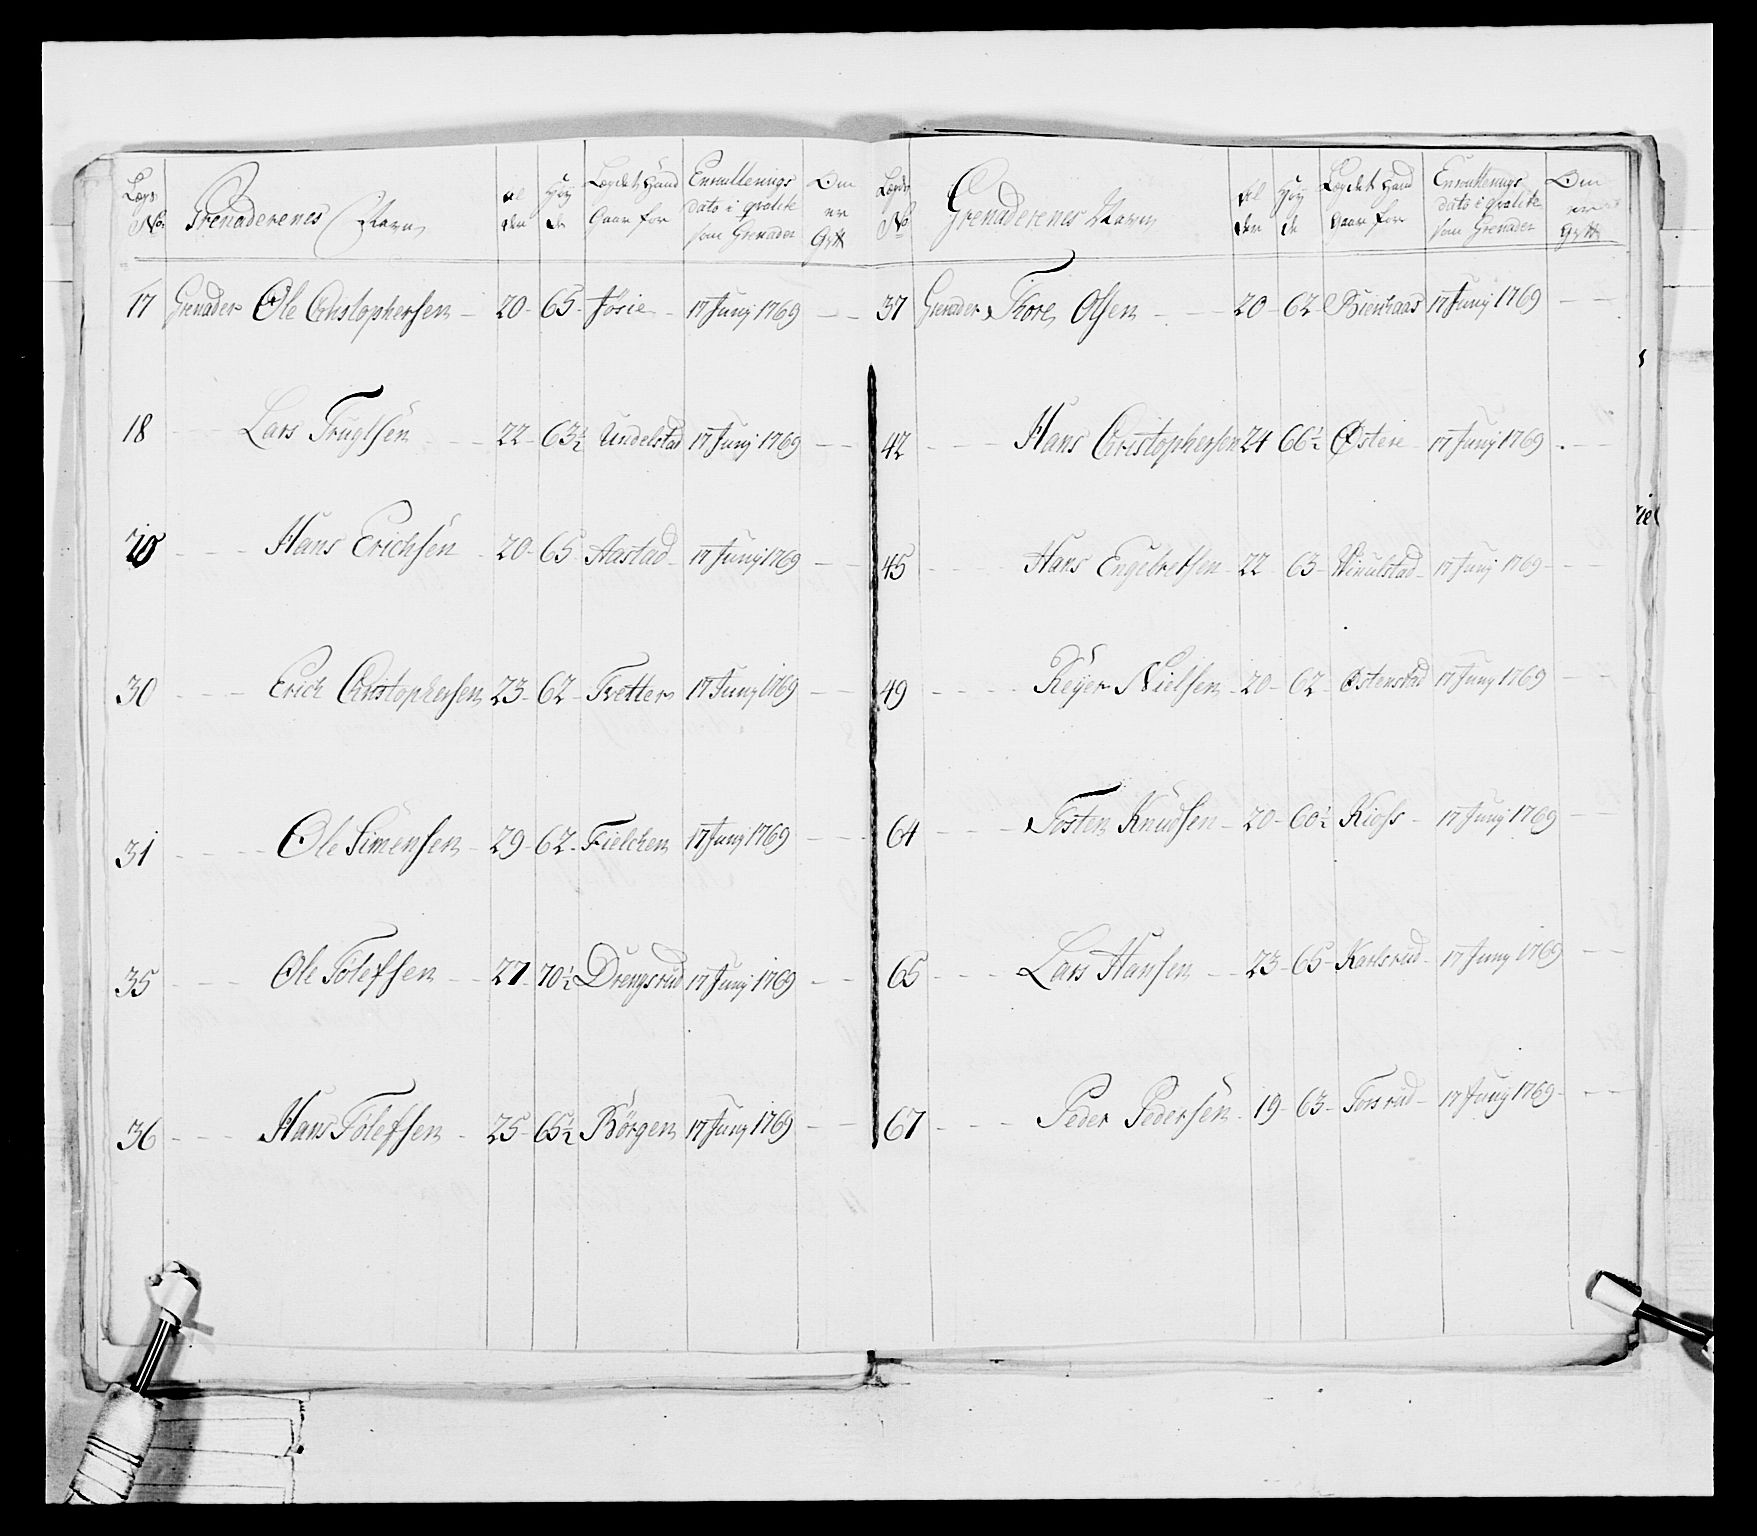 Lægs No. Grenaderenes Navn Al der Høy de Lægdet Hand Gaar for Enrullerings dato i qvalite som Grenader Om er Gift
17 Grenader Ole Christophersen 20 65 Hosie 17 Junij 1769
18 Lars Truglsen 22 63½ Undelstad 17 Junij 1769
Hans Erichsen 20 65 Aastad 17 Junij 1769
30 Erich Christophersen 23 62 Tretter 17 Junij 1769
31 Ole Simensen 29 62 Fielchen 17 Junij 1769
35 Ole Tolefsen 27 70½ Drengsrud 17 Junij 1769
36 Hans Tolefsen 25 65½ Börgen 17 Junij 1769
Lægds No Grenaderenes Navn Al der Høy de Lægdet Hand Gaar for Enrullerings dato i qvalite som Grenader Om er Gift
37 Grenader Tore Olsen 20 62 17 Junij 1769
42 Hans Christophersen 24 66½ Østere 17 Junij 1769
45 Hans Engebretsen 22 63 17 Junij 1769
49 Reyer Nielsen 20 62 Østenstad 17 Junij 1769
64 Tosten Knudsen 20 60½ Kioss 17 Junij 1769
65 Lars Hansen 23 65 Karlsrud 17 Junij 1769
67 Peder Pedersen 19 63 Torsrud 17 Junij 1769